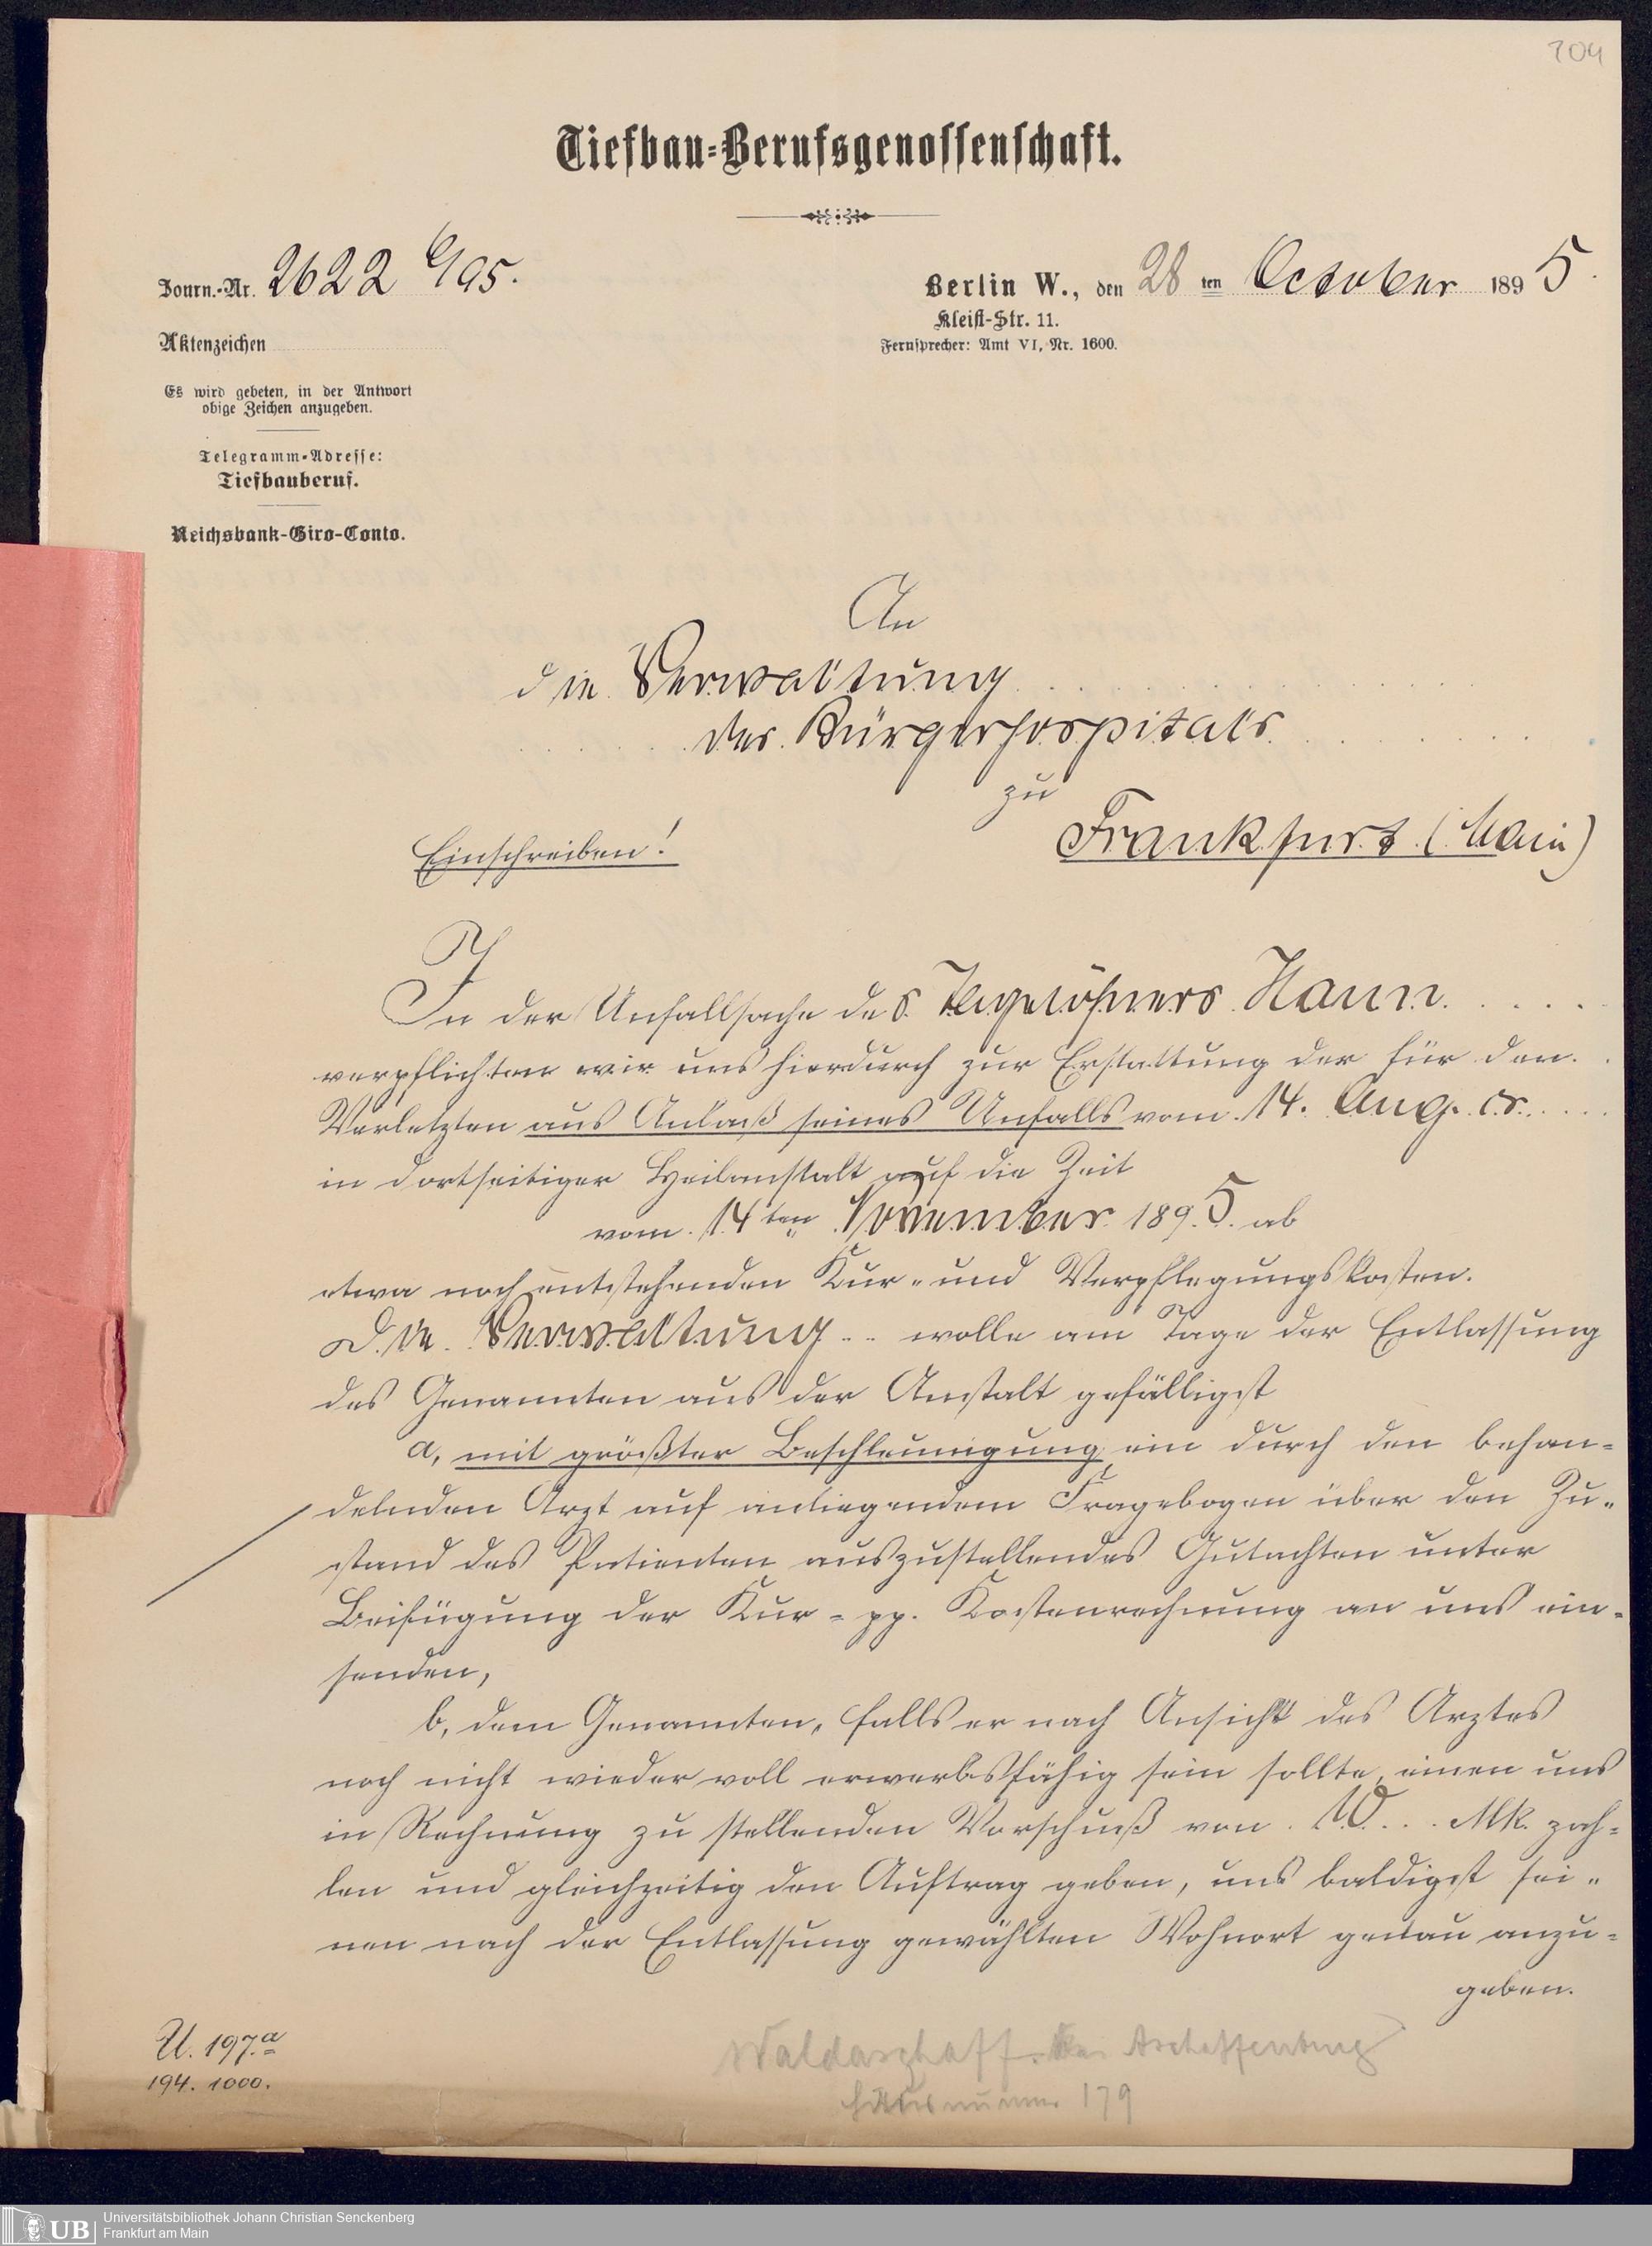 704
Tiefbau-Berufsgenossenschaft.
Journ.-Nr. 2622 /95.
Berlin W., den 28 ten October 1895.
Kleist-Str. 11.
Fernsprecher: Amt VI, Nr. 1600.
Aktenzeichen
Es wird gebeten, in der Antwort
obige Zeichen anzugeben.
Telegramm-Adresse:
Tiefbauberuf.
Reichsbank-Giro-Conto.
An
die Verwaltung
des Bürgerhospitals
zu
Frankfurt (Main)
Einschreiben!
In der Unfallsache des Tagelöhners Haun
verpflichten wir uns hierdurch zur Erstattung der für den
Verletzten aus Anlaß seines Unfalls vom 14. Aug. cr.
in dortseitiger Heilanstalt auf die Zeit
vom 14ten November 1895 ab
etwa noch entstehenden Kur- und Verpflegungskosten.
Die Verwaltung wolle am Tage der Entlassung
des Genannten aus der Anstalt gefälligst
a, mit größter Beschleunigung ein durch den behan-
delnden Arzt auf anliegendem Fragebogen über den Zu-
stand des Patienten auszustellendes Gutachten unter
Beifügung der Kur- pp. Kostenrechnung an uns ein-
senden,
b, dem Genannten, falls er nach Ansicht des Arztes
noch nicht wieder voll erwerbsfähig sein sollte, einen uns
in Rechnung zu stellenden Vorschuß von 10 Mk. zah-
len und gleichzeitig den Auftrag geben, uns baldigst sei-
nen nach der Entlassung gewählten Wohnort genau anzu-
geben.
U. 197.a
194. 1000.
Waldaschaff bei Aschaffenburg
Hausnummer 179
UB
Universitätsbibliothek Johann Christian Senckenberg
Frankfurt am Main